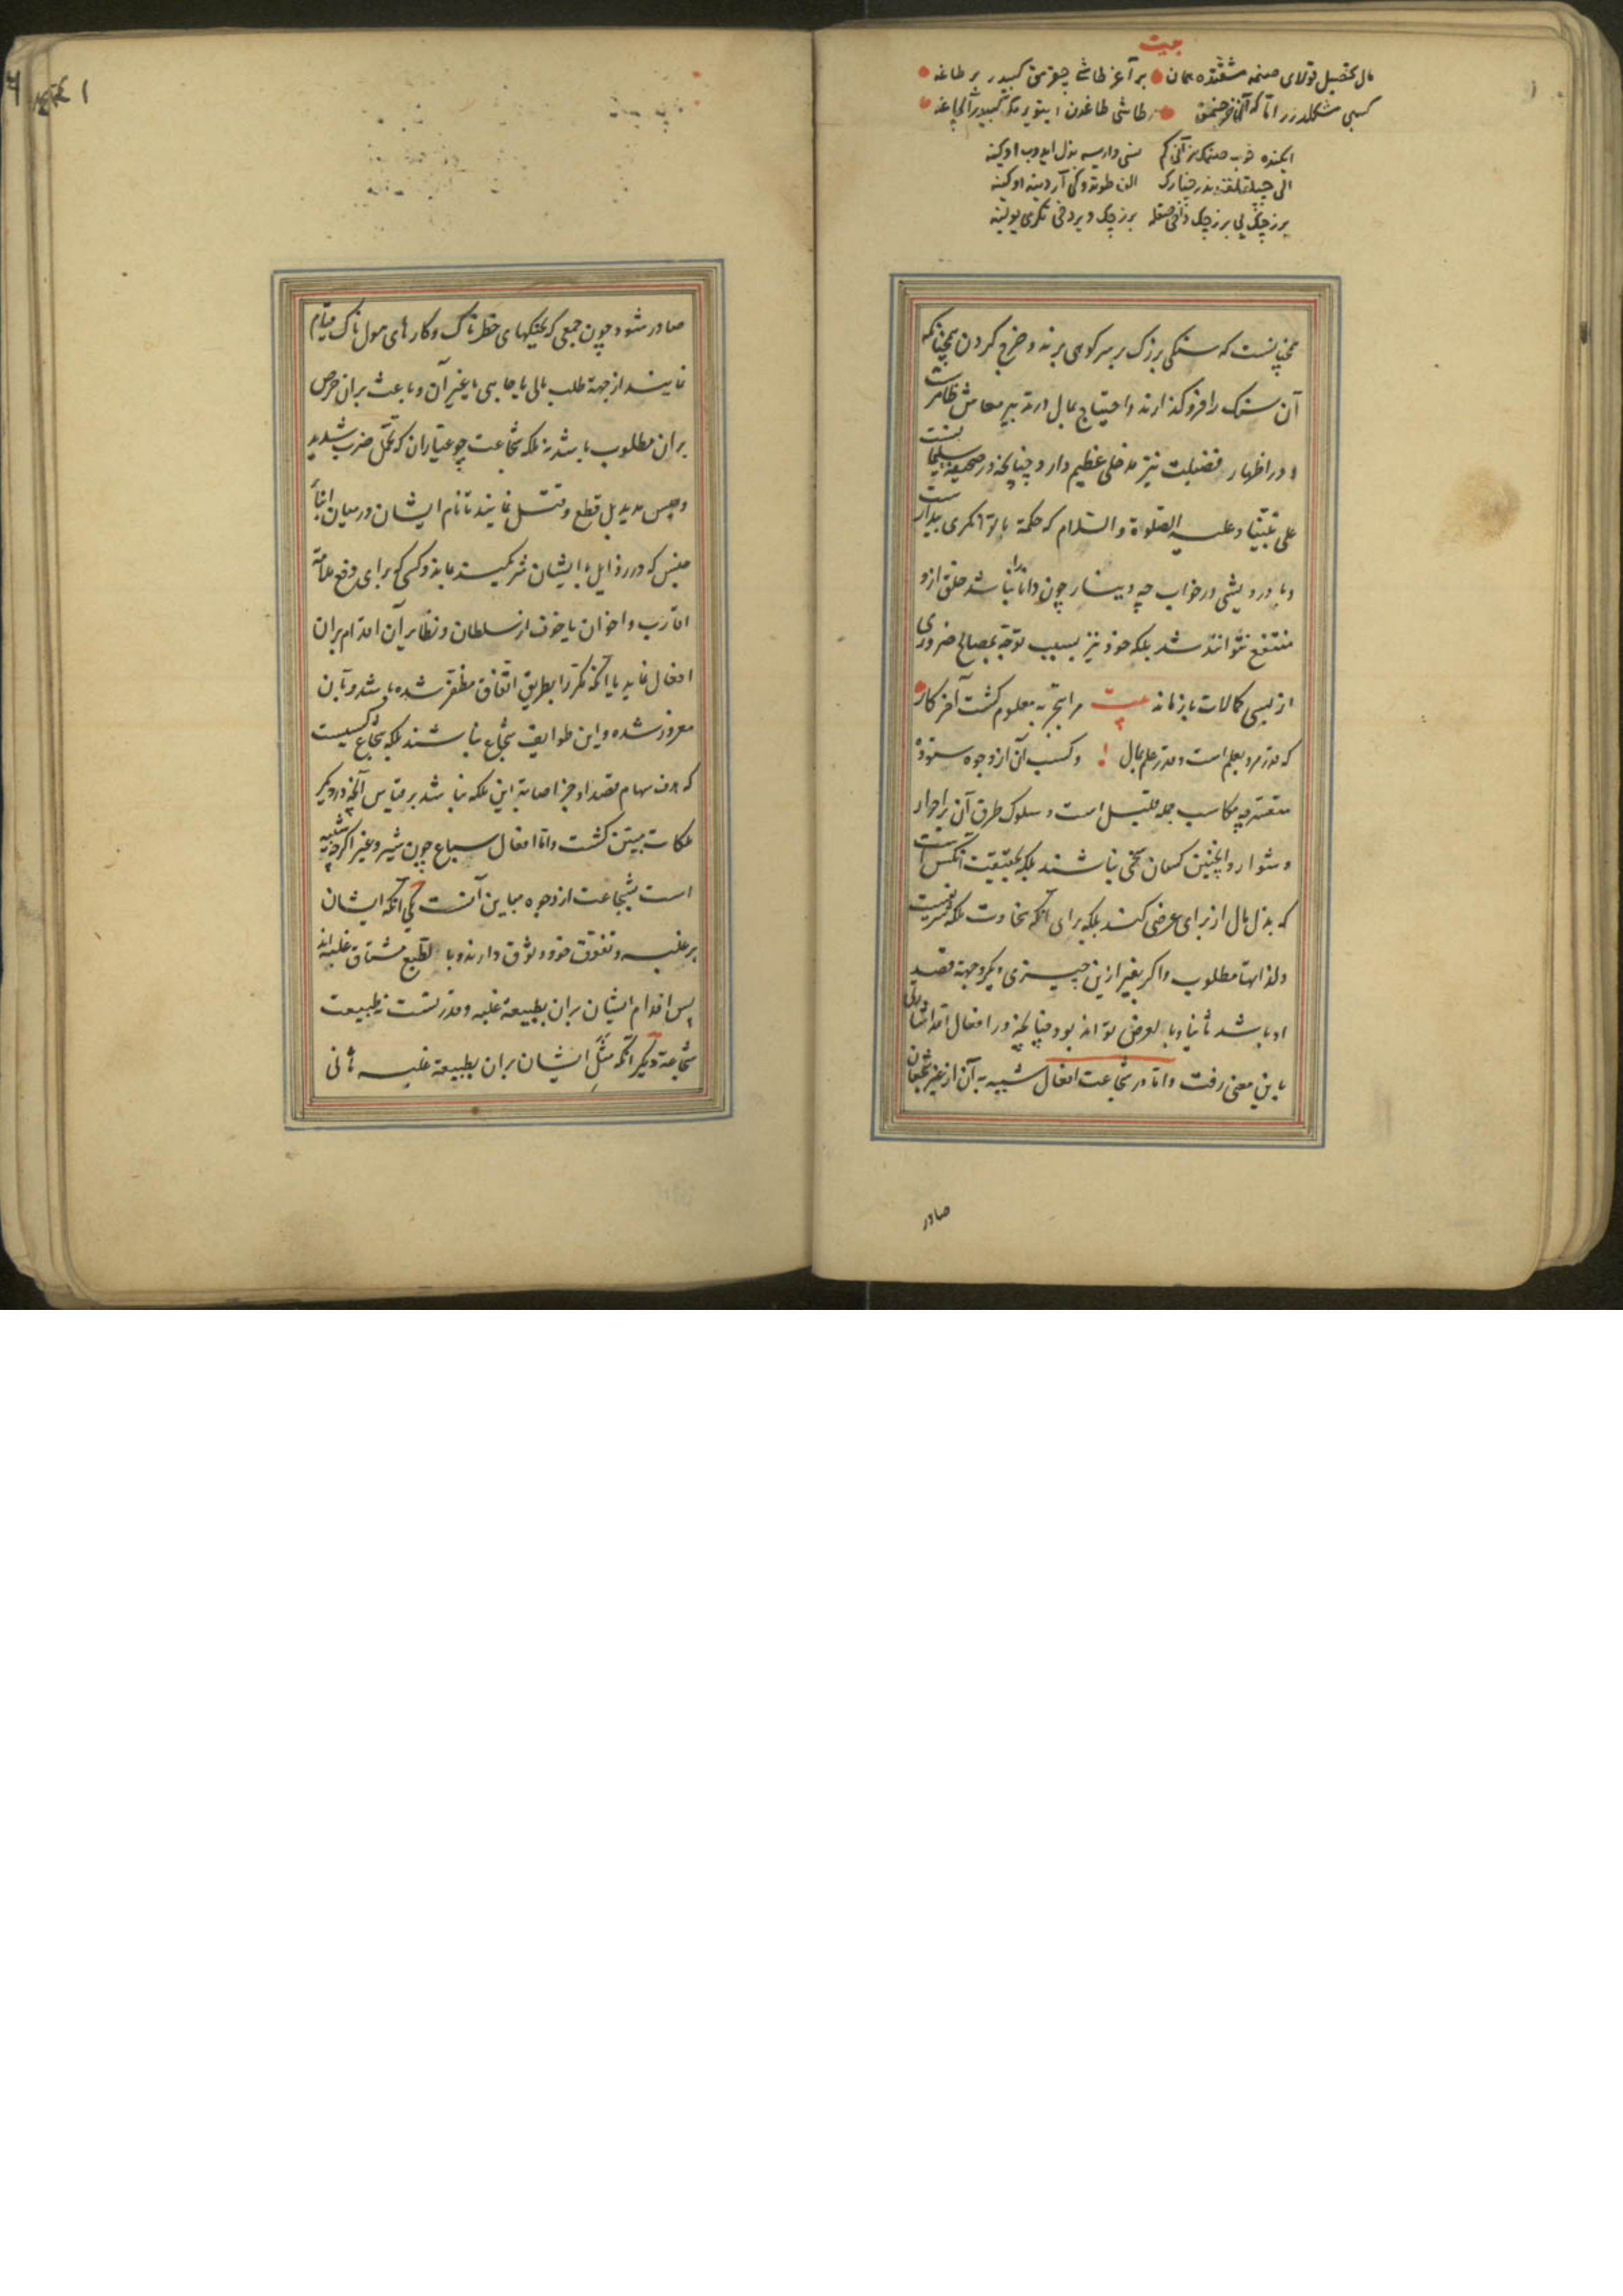 بیت
مال تحصیل قولای صنمه مشقتده همان بر آغر طاشی چقرمق کبیدر بر طاغه
کسبی مشکلدر اتا که آلنی خرجنمق طاشی طاغدن
همچنانست که سنکی بزرک بر سر کوهی برند و خرج کردن همچنانکه
آن سنک را فرو کذارند و احتیاج بمال در تدبیر معاش ظاهرست
و در اظهار فضیلت نیز مدخلی عظیم دارد چنانچه در صحیفه سلیمان است
علی نبینا و علیه الصلوة والسلام که حکمة با توانکری بیدارست
و با درویشی در خواب چه دینار چون دانا را نباشد خلق ازو
منتفع نتوانند شد بلکه خود نیز بسبب توجه بمصالح ضروری
از بسی کمالات باز ماند بیت مرا تجربه معلوم کشت آخر کار
که قدر مرد بعلم است و قدر علم بمال و کسب آن از وجوه ستوده
متعسر چه مکاسب جمله قلیل است و سلوک طرق آن بر احرار
دشوار و اینچنین کسان سخی نباشند بلکه بحقیقت سخی آنکس است
که بذل مال از برای غرضی نکند بلکه برای آنکه سخاوت ملکه شریفست
و لذاتها مطلوب و اکر بغیر ازین چیزی دیکر وجهه قصد
او باشد ثانیا و بالعرض تواند بود چنانچه در افعال
باین معنی رفت و اما در شجاعت افعال شبیه به آن از غیر شجعان
صادر
صادر شود چون جمعی که بجنکهای خطرناک و کارهای هولناک قیام
نمایند از جهة طلب مالی یا جاهی یا غیر آن و باعث بران حرص
بران مطلوب باشد نه ملکه شجاعت چو عیاران که تحمل ضرب شدید
و حبس مدید بل قطع و قتل نمایند تا نام ایشان در میان ابنأ
جنس که در رذایل با ایشان شریکند بماند و کسی که برای دفع ملامة
اقارب و اخوان یا خوف از سلطان و نظایر آن اقدام بران
افعال نماید یا آنکه مکررا بطریق اتفاق مظفر شده باشد و بان
مغرور شده و این طوایف شجاع نباشند بلکه شجاع کسیست
که هدف سهام قصد او جز اصابة این ملکه نباشد بر قیاس آنچه در دیکر
ملکات مبین کشت و اما افعال سباع چون شیر و غیره اکرچه شبیه
است بشجاعت از وجوه مباین آنست یکی آنکه ایشان
بر غلبه و تفوق خود وثوق دارند و بالطبع مشتاق غلبه اند
پس اقدام ایشان بران بطبیعة غلبه و قدرتست نه طبیعت
شجاعة دیکر آنکه مثل ایشان بران بطبیعة غلبه ثانی